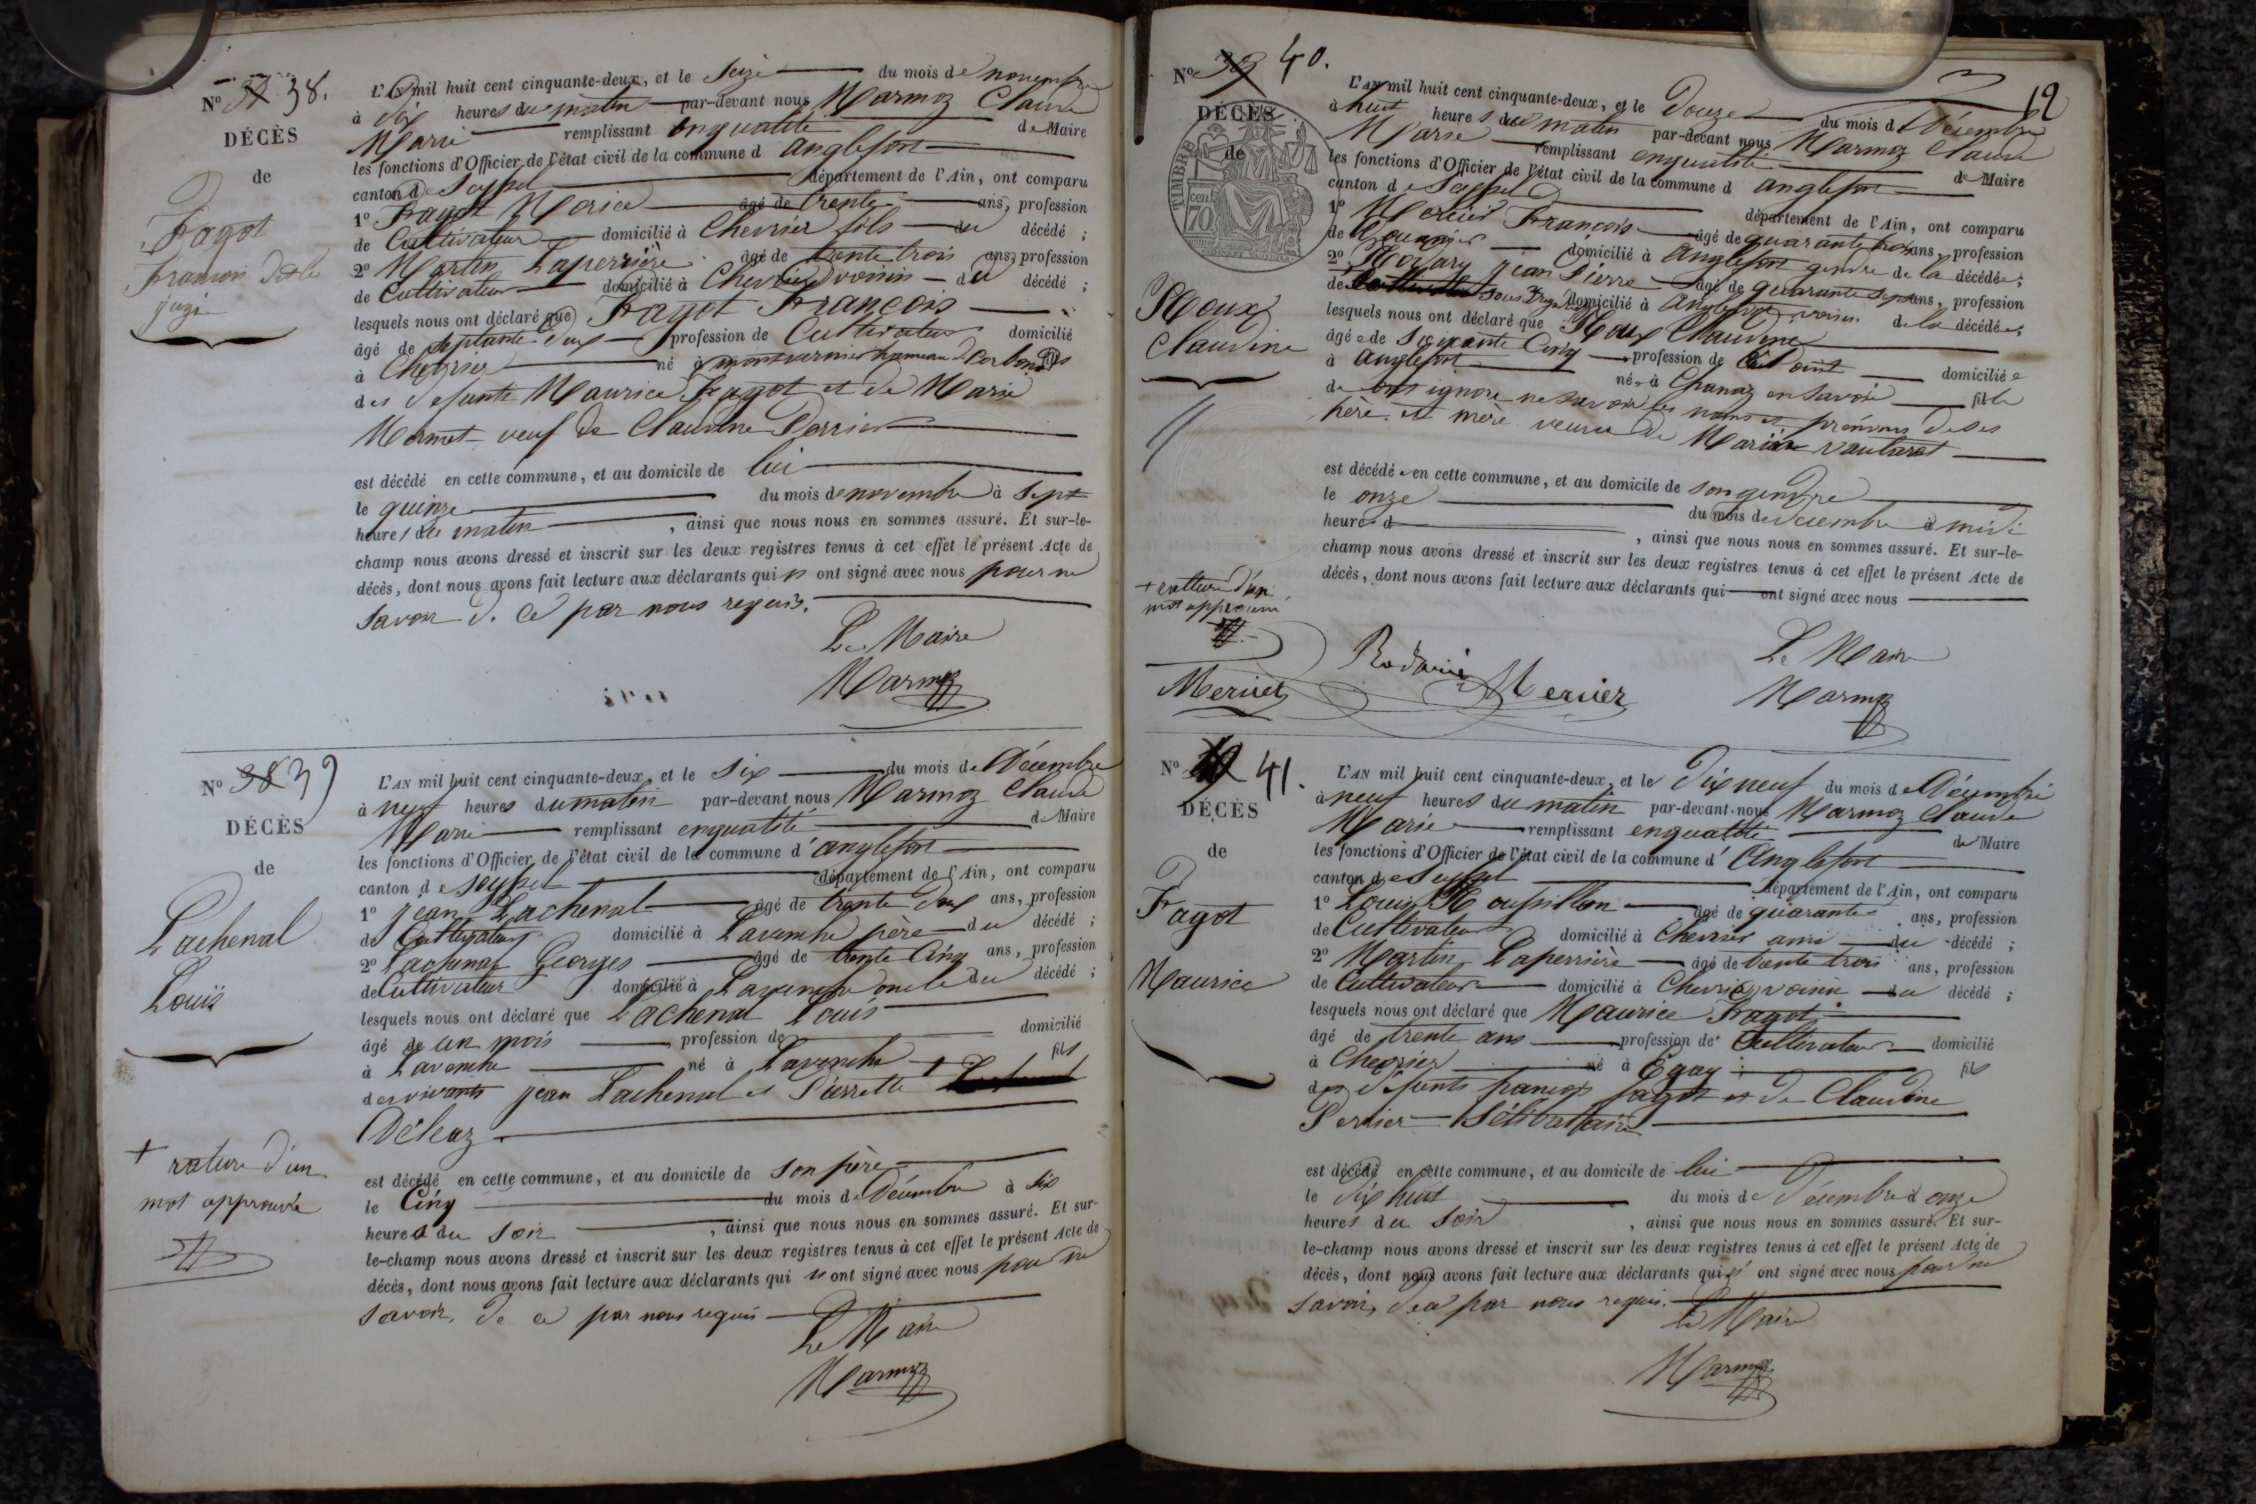 No 38.
DÉCÈS
de
Fagot
françois
L'AN mil huit cent cinquante-deux, et le Seize du mois de novembre
à dix heures du matin par-devant nous Marmoz Claude
Marie remplissant enqualité de Maire
les fonctions d'Officier de l'état civil de la commune d anglefort
canton de Seyssel département de l'Ain, ont comparu
1o Fagot Morice âgé de trente ans, profession
de Cultivateur domicilié à Chevrier fils du décédé ;
2o Martin Laperrière âgé de trente trois ans, profession
de Cultivateur domicilié à Chevrier voisin du décédé ;
lesquels nous ont déclaré que Fagot François
âgé de septante deux profession de Cultivateur domicilié
à Chevrier né à hameau de Corbonod fils
des defunts Maurice Fagot et de Marie
Mermet veuf de Claudine Perrier
est décédé en cette commune, et au domicile de lui
le quinze du mois de novembre à sept
heures du matin , ainsi que nous nous en sommes assuré. Et sur-le-
champ nous avons dressé et inscrit sur les deux registres tenus à cet effet le présent Acte de
décès, dont nous avons fait lecture aux déclarants qui n ont signé avec nous pour ne
savoir de ce par nous requis.
Le Maire
Marmoz
No 38 39
DÉCÈS
de
Lachenal
Louis
+ rature d'un
mot approuvée
L'AN mil huit cent cinquante-deux, et le Six du mois de Décembre
à neuf heures du matin par-devant nous Marmoz Claude
Marie remplissant enqualité de Maire
les fonctions d'Officier de l'état civil de la commune d'anglefort
canton de Seyssel département de l'Ain, ont comparu
1o jean Lachenal âgé de trente deux ans, profession
de Cultivateur domicilié à Lavanche père du décédé ;
2o Lachenal Georges âgé de trente Cinq ans, profession
de Cultivateur domicilié à Lavanche oncle du décédé ;
lesquels nous ont déclaré que Lachenal Louis
âgé de un mois profession de domicilié
à Lavanche né à Lavanche fils
des vivants jean Lachenal et Pierrette +
Déléaz
est décédé en cette commune, et au domicile de son père
le Cinq du mois de Décembre à six
heures du soir , ainsi que nous nous en sommes assuré. Et sur-
le-champ nous avons dressé et inscrit sur les deux registres tenus à cet effet le présent Acte de
décès, dont nous avons fait lecture aux déclarants qui n ont signé avec nous pour ne
savoir de ce par nous requis
Le Maire
Marmoz
No 39 40.
12
DÉCÈS
de
TIMBRE
70 cen
Roux
Claudine
L'AN mil huit cent cinquante-deux, et le Douze du mois de Décembre
à huit heures du matin par-devant nous Marmoz Claude
Marie remplissant enqualité de Maire
les fonctions d'Officier de l'état civil de la commune d anglefort
canton de Seyssel département de l'Ain, ont comparu
1o Mercier François âgé de quarante trois ans, profession
de domicilié à Anglefort gendre de la décédée ;
2o jean Pierre âgé de quarante sept ans, profession
de domicilié à Anglefort voisin de la décédée ;
lesquels nous ont déclaré que Roux Claudine
âgée de Soixante Cinq profession de domiciliée
à Anglefort née à Chanaz en Savoie fille
de ignore ne savoir les noms et prénoms de ses
père et mère veuve de
est décédée en cette commune, et au domicile de son gendre
le onze du mois de décembre à midi
heures d , ainsi que nous nous en sommes assuré. Et sur-le-
champ nous avons dressé et inscrit sur les deux registres tenus à cet effet le présent Acte de
décès, dont nous avons fait lecture aux déclarants qui ont signé avec nous
+ d'un
mot approuvé
Mercier
Mercier
Le Maire
Marmoz
No 41.
DÉCÈS
de
Fagot
Maurice
L'AN mil huit cent cinquante-deux, et le Dix neuf du mois de Décembre
à neuf heures du matin par-devant nous Marmoz Claude
Marie remplissant enqualité de Maire
les fonctions d'Officier de l'état civil de la commune d'Anglefort
canton de Seyssel département de l'Ain, ont comparu
1o Louis Roussillon âgé de quarante ans, profession
de Cultivateur domicilié à Chevrier ami du décédé ;
2o Martin Laperrière âgé de trente trois ans, profession
de Cultivateur domicilié à Chevrier voisin du décédé ;
lesquels nous ont déclaré que Maurice Fagot
âgé de trente ans profession de Cultivateur domicilié
à Chevrier né à fils
des défunts françois fagot et de Claudine
Perrier Sélibattaire
est décédé en cette commune, et au domicile de lui
le dix huit du mois de Décembre à onze
heures du soir , ainsi que nous nous en sommes assuré. Et sur-
le-champ nous avons dressé et inscrit sur les deux registres tenus à cet effet le présent Acte de
décès, dont nous avons fait lecture aux déclarants qui n' ont signé avec nous pour ne
savoir, de ce par nous requis.
Le Maire
Marmoz